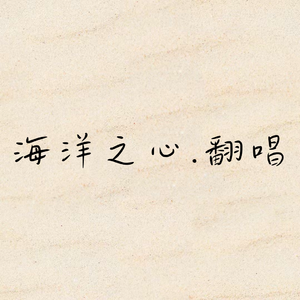 海洋之心.翻唱